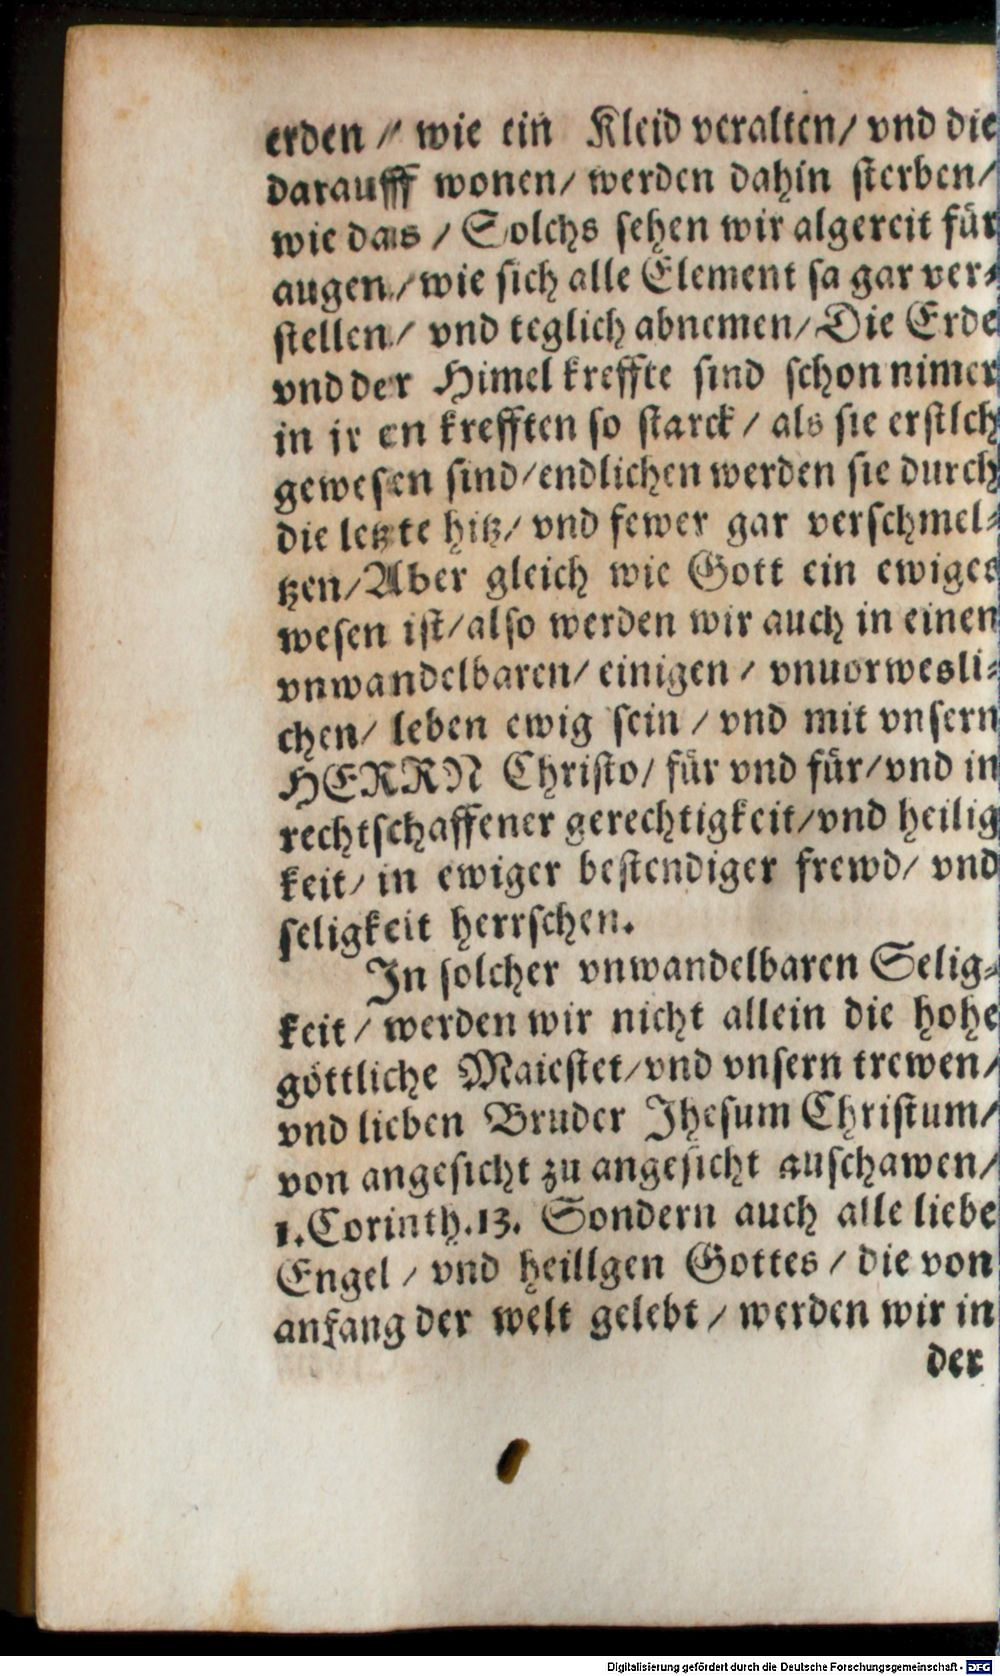 erden // wie ein Kleid veralten/ vnd die
darauff wonen/ werden dahin sterben/
wie das / Solchs sehen wir algereit für
augen/ wie sich alle Element sa gar ver⸗
stellen/ vnd teglich abnemen/ Die Erde
vnd der Himel kreffte sind schon nimer
in iren krefften so starck / als sie erstlch
gewesen sind/ endlichen werden sie durch
die letzte hitz/ vnd fewer gar verschmel⸗
tzen/ Aber gleich wie Gott ein ewiges
wesen ist/ also werden wir auch in einen
vnwandelbaren/ einigen / vnuorwesli⸗
chen/ leben ewig sein / vnd mit vnsern
HERRN Christo/ für vnd für/ vnd in
rechtschaffener gerechtigkeit/ vnd heilig
keit/ in ewiger bestendiger frewd/ vnd
seligkeit herrschen.
In solcher vnwandelbaren Selig⸗
keit / werden wir nicht allein die hohe
göttliche Maiestet/ vnd vnsern trewen/
vnd lieben Bruder Jhesum Christum/
von angesicht zu angesicht anschawen/
1. Corinth. 13. Sondern auch alle liebe
Engel / vnd heillgen Gottes / die von
anfang der welt gelebt / werden wir in
der
Digitalisierung gefördert durch die Deutsche Forschungsgemeinschaft - DFG